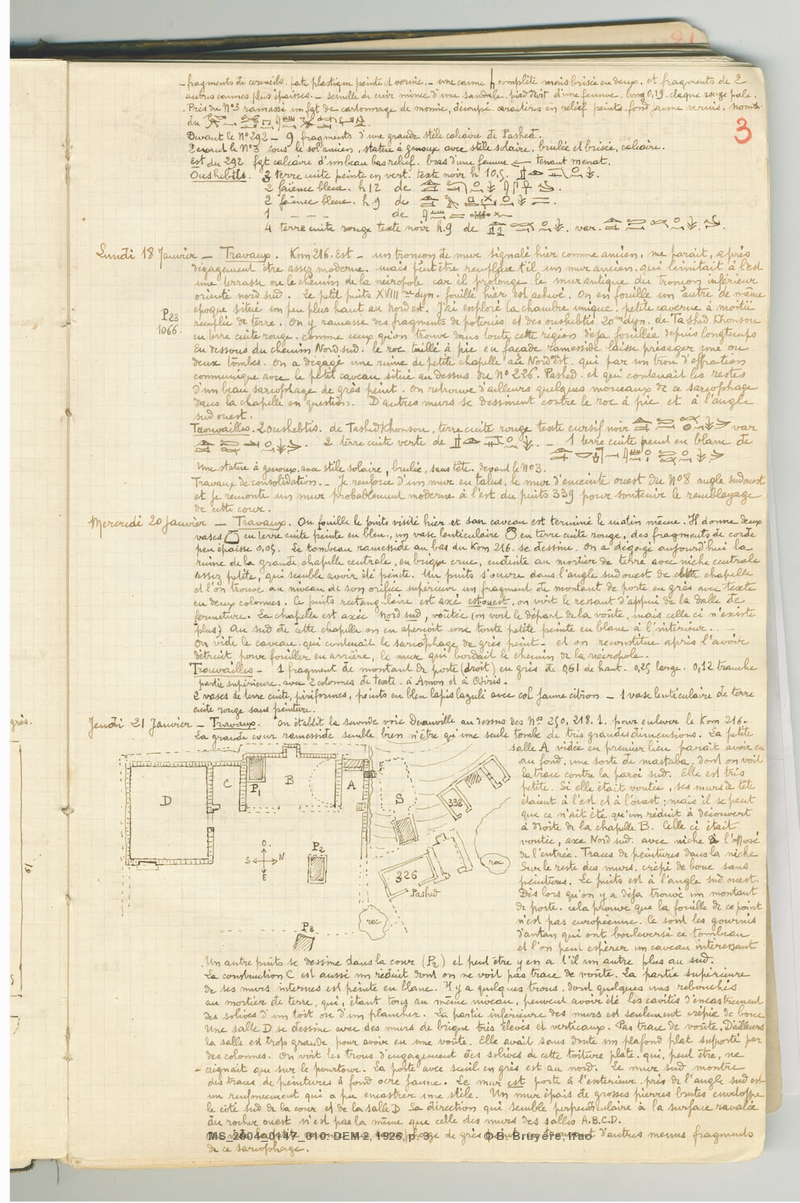 – fragments de cercueils. pate plastique peinte et vernie. – une canne complète mais brisée en deux. et fragments de 2
autres cannes plus épaisses. – semelle de cuir mince d'une sandale. pied droit d'une femme. long 0,19. claque rouge pale.
Près du N°3 ramassé un fgt de cartonnage de momie, découpé caractères en relief peints. fond jaune vernis. nom
du
3
Devant le N° 292 – 9 fragments d'une grande stèle calcaire de Pashed.
Devant le N°3 sous le sol ancien, statue à genoux avec stèle solaire. brulée et brisée, calcaire.
Est du 292 fgt calcaire d'un beau bas relief. bras d'une femme tenant menat.
Oushebtis. 3 terre cuite peinte en vert. texte noir h 10,5.
2 faience bleue. h 12 de
2 faience bleue. h. 9 de
1 – – – de
4 terre cuite rouge texte noir h. 9 de var.
Lundi 18 Janvier – Travaux. Kom 216. Est – un tronçon de mur signalé hier comme ancien, me parait, après
dégagement être assez moderne. mais peut être remplace t'il un mur ancien qui limitait à l'est
une terrasse ou le chemin de la nécropole car il prolonge le mur antique du tronçon inférieur
orienté nord sud. Le petit puits XVIII me dyn. fouillé hier est achevé. On en fouille un autre de même
P23
1066.
époque situé un peu plus haut au Nord est. J'ai exploré la chambre unique. petite caverne à moitié
remplie de terre. On y ramasse des fragments de poteries et des oushebtis 20me dyn. de Tashed Khonsou
en terre cuite rouge. comme ceux qu'on trouve dans toute cette région déja fouillée depuis longtemps
En dessous du chemin Nord sud. le roc taillé à pic en façade ramesside laisse présager une ou
deux tombes. On a dégagé une ruine de petite chapelle au Nord est, qui par un trou d'effraction
communique avec le petit caveau situé au dessus du N° 226. Pashed. et qui contenait les restes
d'un beau sarcophage de grès peint. On retrouve d'ailleurs quelques morceaux de ce sarcophage
dans la chapelle en question. D'autres murs se dessinent contre le roc à pic et à l'angle
sud ouest.
Trouvailles. 2 oushebtis. de Tashed Khonsou, terre cuite rouge texte cursif noir var
2 terre cuite verte de – 1 terre cuite peint en blanc de
Une statue à genoux avec stèle solaire, brulée, sans tête. devant le N°3.
Travaux de consolidation. – Je renforce d'un mur en talus, le mur d'enceinte ouest du N°8 angle sud ouest
et je remonte un mur probablement moderne à l'est du puits 339 pour soutenir le remblayage
de cette cour.
Mercredi 20 Janvier – Travaux. On fouille le puits visité hier et son caveau est terminé le matin même. Il donne deux
vases en terre cuite peinte en bleu, un vase lenticulaire en terre cuite rouge, des fragments de corde
peu épaisse 0,05. Le tombeau ramesside au bas du Kom 216. se dessine. On a dégagé aujourd'hui la
ruine de la grande chapelle centrale, en brique crue, enduite au mortier de terre avec niche centrale
assez petite, qui semble avoir été peinte. Un puits s'ouvre dans l'angle sud ouest de cette chapelle
et l'on trouve au niveau de son orifice supérieur un fragment de montant de porte en grès avec texte
en deux colonnes. Le puits rectangulaire est axé est ouest, on voit le ressaut d'appui de la dalle de
fermeture. La chapelle est axée Nord sud, voûtée (on voit le départ de la voûte, mais celle ci n'existe
plus) Au sud de cette chapelle on en aperçoit une toute petite peinte en blanc à l'intérieur.
On vide le caveau qui contenait le sarcophage de grès peint. et on reconstitue après l'avoir
détruit pour fouiller en arrière, le mur qui bordait le chemin de la nécropole.
Trouvailles – 1 fragment de montant de porte (droit) en grès de 0,61 de haut. 0,25 large. 0,12 tranche
partie supérieure. avec 2 colonnes de texte. à Amon et à Osiris.
2 vases de terre cuite, piriformes, peints en bleu lapis lazuli avec col jaune citron – 1 vase lenticulaire de terre
cuite rouge sans peinture.
Jeudi 21 Janvier – Travaux. On établit la seconde voie Decauville au dessus des N° 250, 218. 1. pour enlever le Kom 216.
La grande cour ramesside semble bien n'être qu'une seule tombe de très grandes dimensions. La petite
salle A vidée en premier lieu parait avoir eu
au fond, une sorte de mastaba, dont on voit
la trace contre la paroi sud. Elle est très
petite. Si elle était voutée, ses murs de tête
étaient à l'est et à l'ouest; mais il se peut
que ce n'ait été qu'un réduit à découvert
à droite de la chapelle B. Celle ci était
voutée, axe Nord sud. avec niche à l'opposé
de l'entrée. Traces de peintures dans la niche
Sur le reste des murs, crépi de boue sans
peintures. Le puits est à l'angle sud ouest.
Dès lors qu'on y a déja trouvé un montant
de porte. cela prouve que la fouille de ce point
n'est pas européenne. Ce sont les gournis
d'antan qui ont bouleversé ce tombeau
et l'on peut espérer un caveau intéressant
D
C
P1
B
A
S
338
P2
O
S N
E
326
Pashed
roc
roc
P3
Un autre puits se dessine dans la cour (P2) et peut être y en a t'il un autre plus au sud.
La construction C est aussi un réduit dont on ne voit pas trace de voûte. La partie supérieure
de ses murs internes est peinte en blanc. Il y a quelques trous, dont quelques uns rebouchés
au mortier de terre, qui, étant tous au même niveau, peuvent avoir été les cavités d'encastrement
des solives d'un toit ou d'un plancher. La partie inférieure des murs est seulement crépie de boue
Une salle D se dessine avec des murs de brique très élevés et verticaux. Pas trace de voûte, D'ailleurs
la salle est trop grande pour avoir eu une voûte. Elle avait sans doute un plafond plat supporté par
des colonnes. On voit les trous d'engagement des solives de cette toiture plate. qui, peut être, ne
régnait que sur le pourtour. La porte avec seuil en grès est au nord. Le mur sud montre
des traces de peintures à fond ocre jaune. Le mur est porte à l'extérieur, près de l'angle sud est
un renfoncement qui a pu encastrer une stèle. Un mur épais de grosses pierres brutes enveloppe
le côté sud de la cour et de la salle D. La direction qui semble perpendiculaire à la surface ravalée
du rocher ouest n'est pas la même que celle des murs des salles A.B.C.D.
de grès d'autres menus fragments
de ce sarcophage.
MS_2004_0147_010: DEM 2, 1926, p. 3 © B. Bruyère, Ifao
grès.